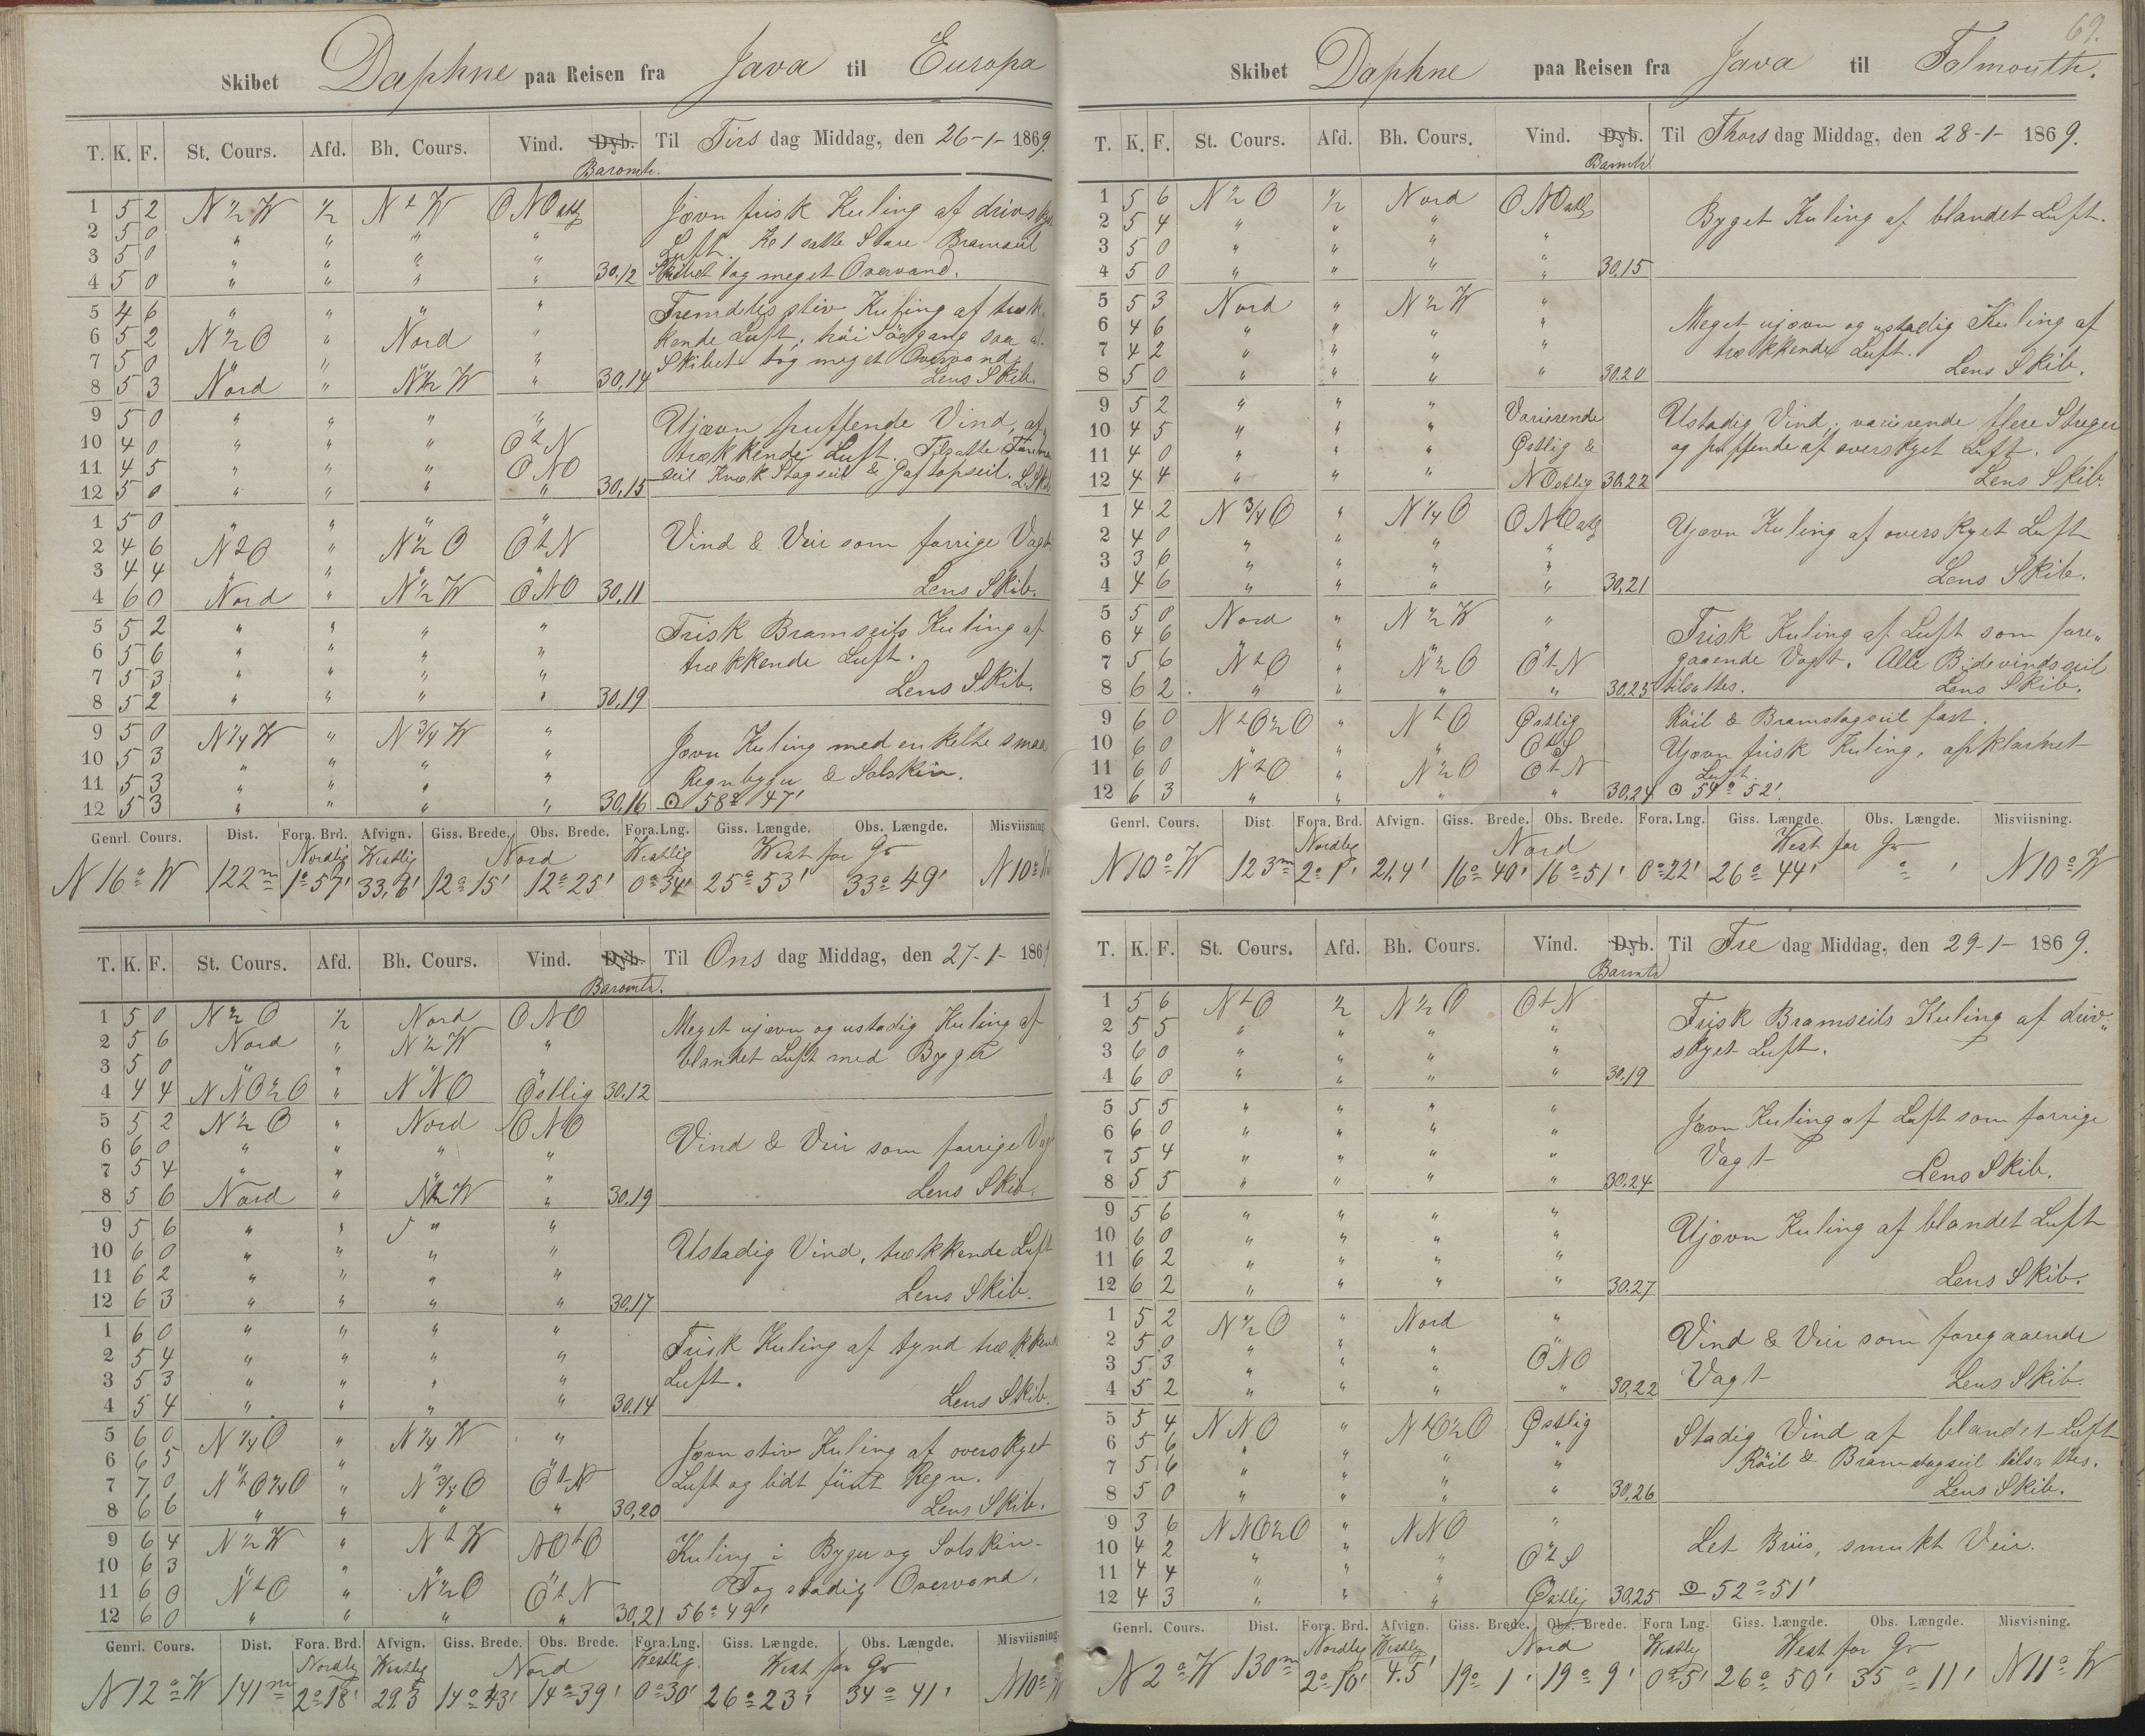 Skibet Daphne paa Reisen fra Java til Europa
T. K. F. St. Cours. Afd. Bh. Cours. Vind. Dyb. Til Tirs dag Middag, den 26-1- 1869.
Baromtr.
1 5 2 N ½ W ½ N t W ONO
2 5 0 " " " "
3 5 0 " " " "
4 5 0 " " " " 30,12
Jovn frisk Kuling af
Luft. Kl 1 satte Store Bramseil
Skibet tog meget Overvand.
5 4 6 " " " "
6 5 2 N ½ O " Nord "
7 5 0 " " " "
8 5 3 Nord " N ½ W " 30,14
Fremdeles stiv Kuling af træk
kende Luft, höi Søegang saa at
Skibet tog meget Overvand.
Lens Skib.
9 5 0 " " " "
10 4 0 " " " O t N
11 4 5 " " " ONO
12 5 0 " " " " 30,15
Ujævn puffende Vind, af
trækkende Luft. Tilsatte
seil Knæk Stagseil & Gaftopseil. L. Skib
1 5 0 " " " "
2 4 6 N t O " N ½ O O t N
3 4 4 " " " "
4 6 0 Nord " N ½ W ONO 30,11
Vind & Veir som forrige Vagt
Lens Skib.
5 5 2 " " " "
6 5 6 " " " "
7 5 3 " " " "
8 5 2 " " " " 30,19
Frisk Bramseils Kuling af
trækkende Luft.
Lens Skib.
9 5 0 N ¼ W N ¾ W "
10 5 3 " " " "
11 5 3 " " " "
12 5 3 " " " " 30,16
Jovn Kuling med enkelte smaa
Regnbyger & Solskin.
⊙ 58° 47'
Genrl. Cours. Dist. Fora. Brd. Afvign. Giss. Brede. Obs. Brede. Fora. Lng. Giss. Længde. Obs. Længde. Misviisning
Nordlig Westlig Nord Westlig West for Gr
N 16° W 122m 1° 57' 33,6' 12° 15' 12° 25' 0° 34' 25° 53' 33° 49' N 10° W
T. K. F. St. Cours. Afd. Bh. Cours. Vind. Dyb. Til Ons dag Middag, den 27-1- 186
Baromtr.
1 5 0 N ½ O ½ Nord ONO
2 5 6 Nord " N ½ W "
3 5 0 " " " "
4 4 4 NNO ½ O " NNO Östlig 30,12
Meget ujævn og ustadig Kuling af
blandet Luft med Byger
5 5 2 N ½ O " Nord ONO
6 6 0 " " " "
7 5 4 " " " "
8 5 6 Nord " N ½ W " 30,19
Vind & Veir som forrige Vagt
Lens Skib.
9 5 6 " " " "
10 6 0 " " " "
11 6 2 " " " "
12 6 3 " " " " 30,17
Ustadig Vind, trækkende Luft
Lens Skib.
1 6 0 " " " "
2 5 4 " " " "
3 5 3 " " " "
4 5 4 " " " " 30,14
Frisk Kuling af tynd trækkende
Luft.
Lens Skib.
5 6 0 N ¼ O " N ¼ W "
6 6 5 " " " "
7 7 0 N t O ¼ O " N ¾ O O t N
8 6 6 " " " " 30,20
Jovn stiv Kuling af overskyet
Luft og lidt fiint Regn.
Lens Skib.
9 6 4 N ½ W " N t W NO t O
10 6 3 " " " "
11 6 0 N t O " N ½ O O t N
12 6 0 " " " " 30,21
Kuling i Byger og Solskin-
Tog stadig Overvand.
56° 49'
Genrl. Cours. Dist. Fora. Brd. Afvign. Giss. Brede. Obs. Brede. Fora. Lng. Giss. Længde. Obs. Længde. Misviisning
Nordlig Westlig Nord Westlig. West for Gr
N 12° W 141m 2° 18' 29,3 14° 43' 14° 39' 0° 30' 26° 23' 34° 41' N 10° W
69.
Skibet Daphne paa Reisen fra Java til Falmouth.
T. K. F. St. Cours. Afd. Bh. Cours. Vind. Dyb. Til Thors dag Middag, den 28-1- 1869.
Baromtr
1 5 6 N ½ O ½ Nord ONO
2 5 4 " " " "
3 5 0 " " " "
4 5 0 " " " " 30,15
Byget Kuling af blandet Luft.
5 5 3 Nord " N ½ W "
6 4 6 " " " "
7 4 2 " " " "
8 5 0 " " " " 30.20
Meget ujævn og ustadig Kuling af
trækkende Luft.
Lens Skib.
9 5 2 " " " Varierende
10 4 5 " " " Østlig &
11 4 0 " " "
12 4 4 " " " NOstlig 30,22
Ustadig Vind, varierende flere Streger
og puffende af overskyet Luft.
Lens Skib.
1 4 2 N ¾ O " N ¼ O ONO
2 4 0 " " " "
3 3 6 " " " "
4 4 6 " " " " 30,21
Ujævn Kuling af overskyet Luft
Lens Skib.
5 5 0 Nord " N ½ W "
6 4 6 " " " "
7 5 6 N t O " N ½ O O t N
8 6 2 " " " " 30,25
Frisk Kuling af Luft som fore„
gaaende Vagt. Alle Bidevindsseil
tilsattes. Lens Skib.
9 6 0 N t O ½ O " N t O Østlig
10 6 0 " " " O t S
11 6 0 N t O " N ½ O O t N
12 6 3 " " " " 30,24
Röil & Bramstagseil fast.
Ujævn frisk Kuling, opklarnet
Luft.
⊙ 54° 52'.
Genrl. Cours. Dist Fora. Brd. Afvign. Giss. Brede. Obs. Brede. Fora. Lng. Giss. Længde. Obs. Længde. Misviisning.
Nordlig Nord West for Gr
N 10° W 123m 2° 1' 21,4' 16° 40' 16° 51' 0° 22' 26° 44' ° ' N 10° W
T. K. F. St. Cours. Afd. Bh. Cours. Vind. Dyb. Til Fre dag Middag, den 29-1- 1869.
Baromtr
1 5 6 N t O ½ N ½ O O t N
2 5 5 " " " "
3 6 0 " " " "
4 6 0 " " " " 30,19
Frisk Bramseils Kuling af driv„
skyet Luft.
5 5 5 " " " "
6 6 0 " " " "
7 5 4 " " " "
8 5 5 " " " " 30,24
Jovn Kuling af Luft som forrige
Vagt Lens Skib.
9 5 6 " " " "
10 6 0 " " " "
11 6 2 " " " "
12 6 2 " " " " 30.27
Ujovn Kuling af blandet Luft
Lens Skib.
1 5 2 N ½ O " Nord "
2 5 0 " " " "
3 5 3 " " " ONO
4 5 2 " " " " 30,22
Vind & Veir som foregaaende
Vagt Lens Skib.
5 5 4 NNO " N t O ½ O Østlig
6 5 6 " " " "
7 5 6 " " " "
8 5 0 " " " " 30,26
Stadig Vind af blandet Luft
Röil & Bramstagseil tilsattes.
Lens Skib.
9 3 6 NNO ½ O " NNO "
10 4 2 " " " O t S
11 4 4 " " "
12 4 3 " " " Østlig 30,25
Let Briis, smukt Veir.
⊙ 52° 51'
Genrl. Cours. Dist. Fora. Brd. Afvign. Giss. Brede. Obs. Brede. Fora Lng. Giss. Længde. Obs. Længde. Misvisning.
Nordlig Westlig Nord Westlig West for Gr
N 2° W 130m 2° 10' 4.5' 19° 1' 19° 9' 0° 5' 26° 50' 35° 11' N 11° W